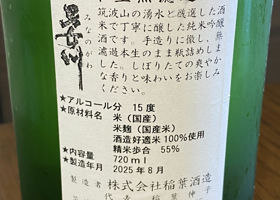 みなのがわ
筑波山の湧水と厳選した酒
米で丁寧に醸した純米吟醸
酒です。手造りに徹し、無
濾過本生のまま瓶詰めしま
した。しぼりたての爽やか
な香りと味わいをお楽しみ
ください。
★アルコール分 15度
★原材料名 米(国産)
米麹(国産米)
酒造好適米100%使用
精米歩合 55%
★内容量 720ml
★製造年月 2025年8月
製造者 株式会社稲葉酒造
代表 稲葉伸子